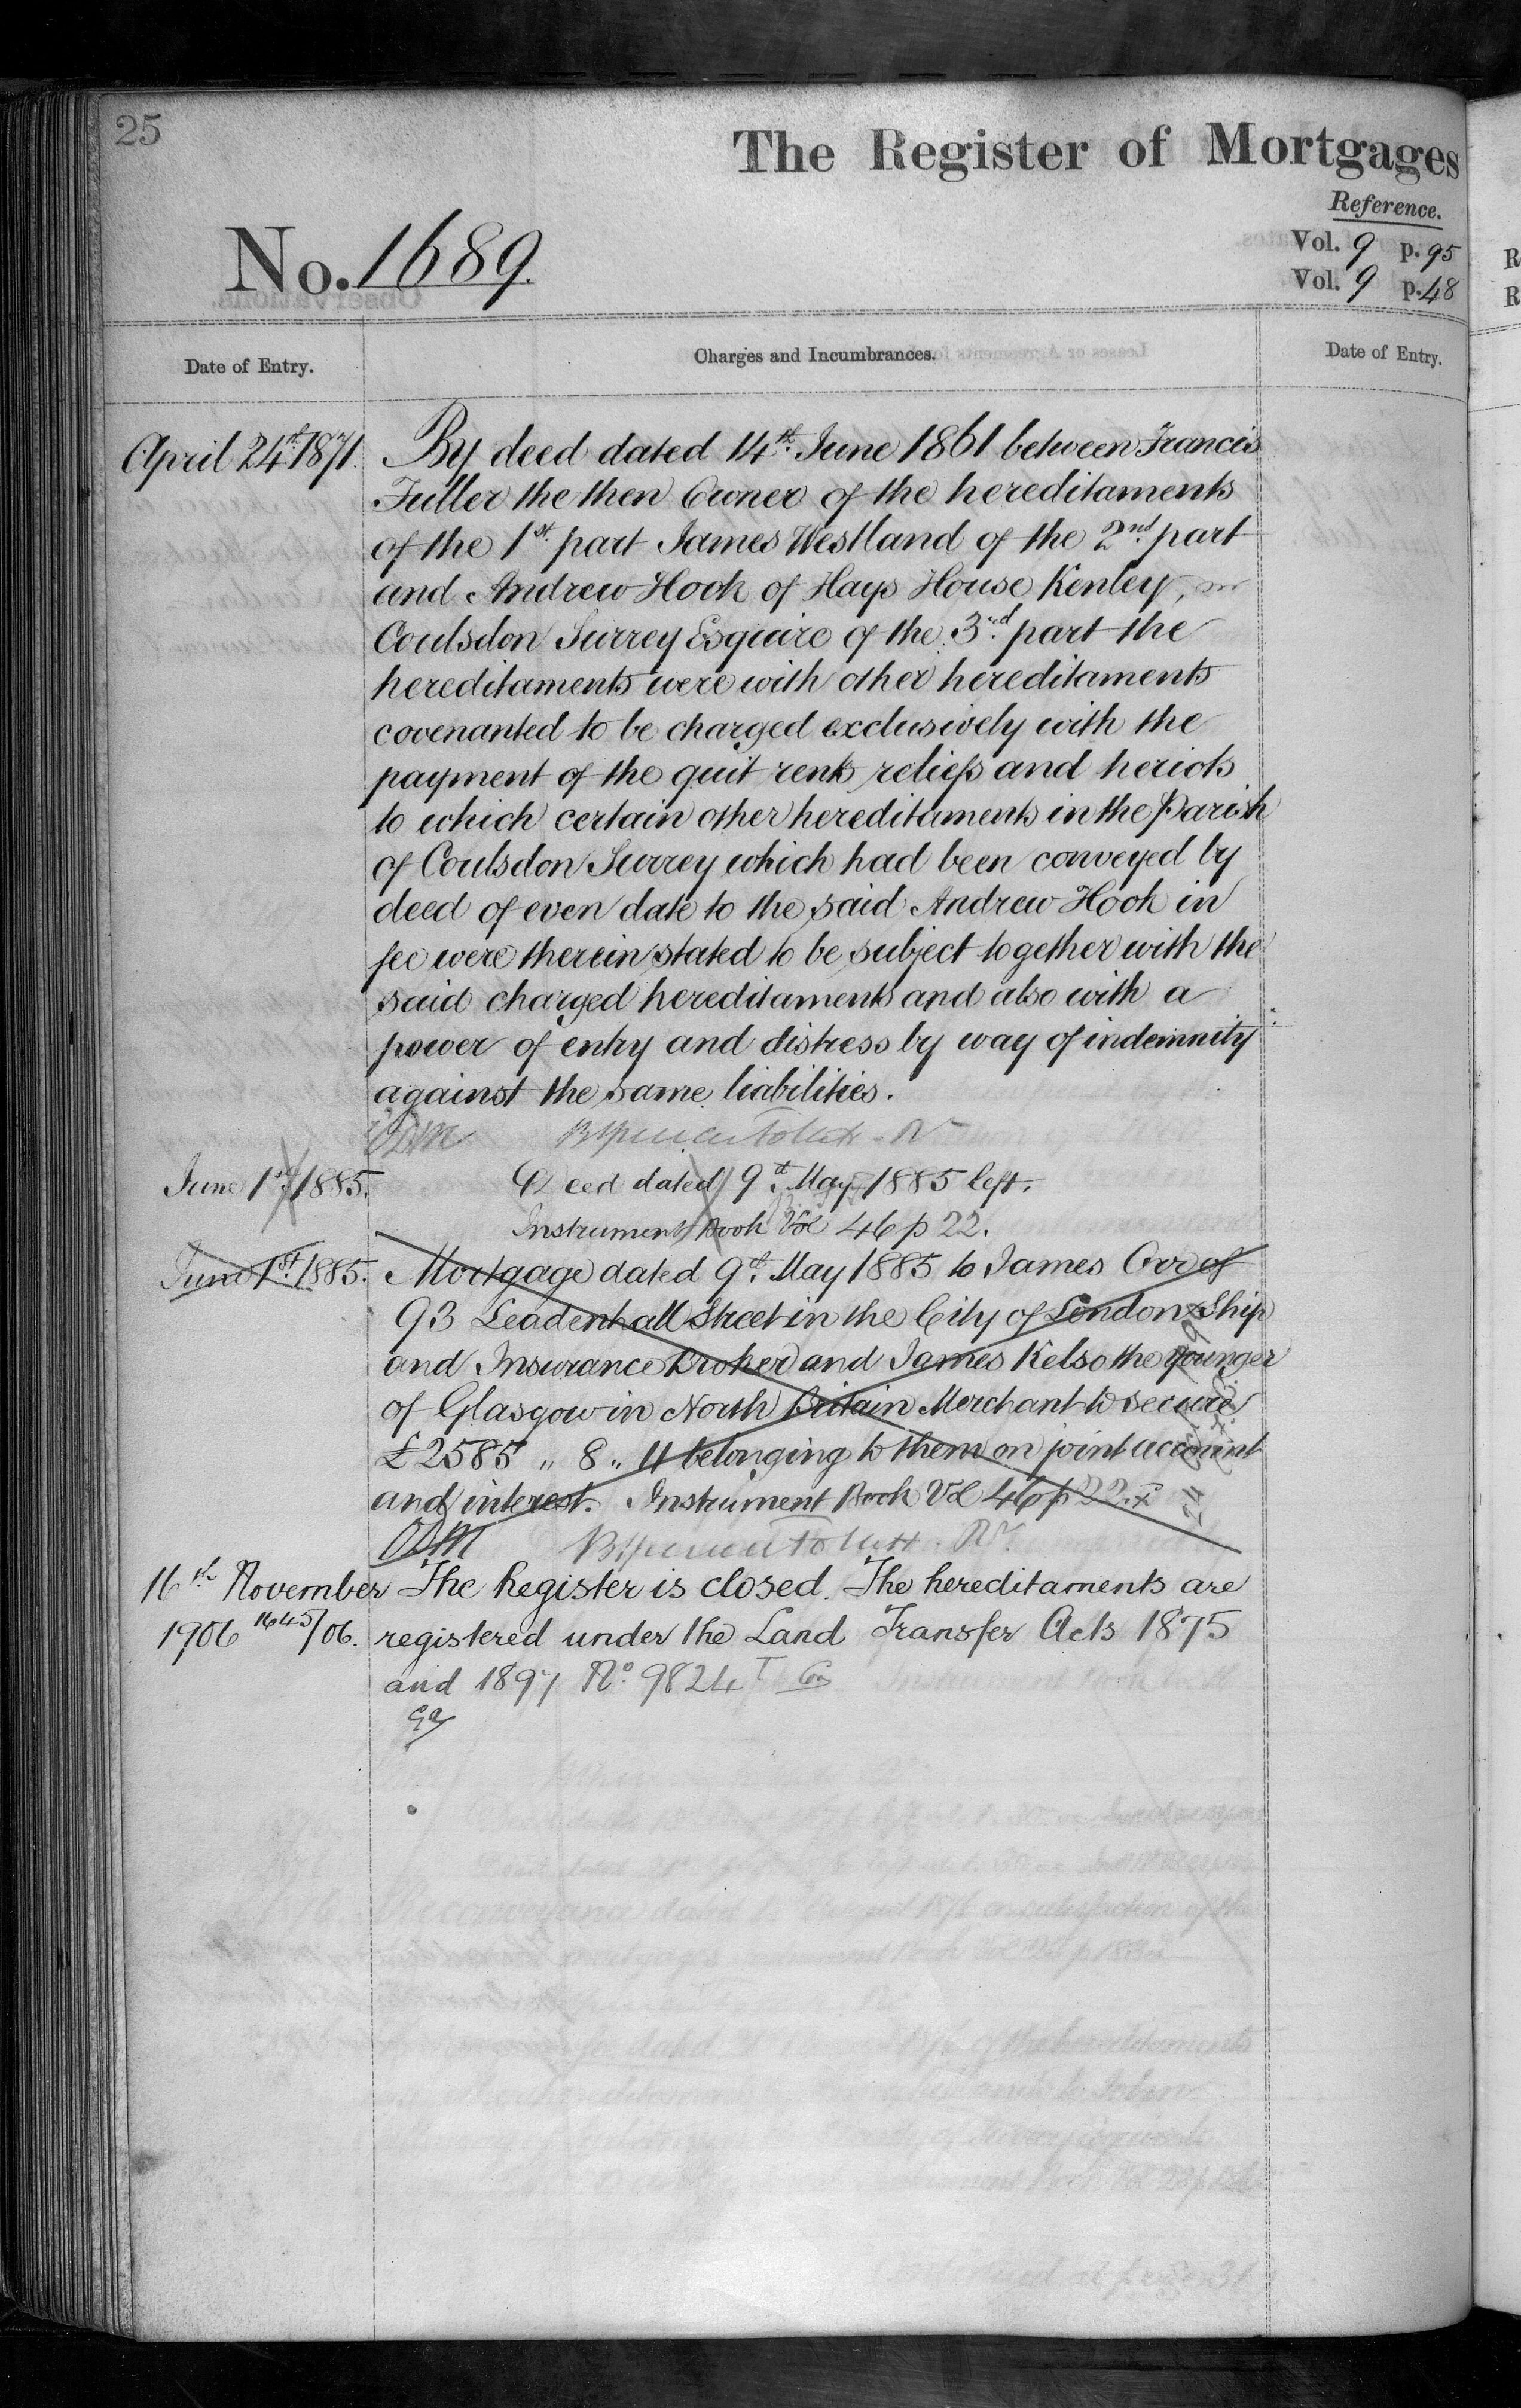 25
The Register of Mortgages
Reference.
Vol. 9 p. 95
Vol. 9 p. 48
No. 1689.
Date of Entry.
Charges and Incumbrances.
Date of Entry.
April 24th 1871.
By deed dated 14th June 1861 between Francis
Fuller the then Owner of the hereditaments
of the 1st part James Westland of the 2nd part
and Andrew Hook of Hays House Kenley,
Coulsdon Surrey Esquire of the 3rd part the
hereditaments were with other hereditaments
covenanted to be charged exclusively with the
payment of the quit rents reliefs and heriots
to which certain other hereditaments in the Parish
of Coulsdon Surrey which had been conveyed by
deed of even date to the said Andrew Hook in
fee were therein stated to be subject together with the
said charged hereditaments and also with a
power of entry and distress by way of indemnity
against the same liabilities.
June 1st 1885.
Deed dated 9th May 1885 left.
Instrument Book Vol 46 p 22.
June 1st 1885.
Mortgage dated 9th May 1885 to James of
93 Leadenhall Street in the City of London Ship
and Insurance Broker and James Kelso the younger
of Glasgow in North Britain Merchant to secure
£2585 „ 8 „ 11 belonging to them on joint account
and interest. Instrument Book Vol 46 p 22.
16th November
1906 1645/06.
The Register is closed. The hereditaments are
registered under the Land Transfer Acts 1875
and 1897 No. 9824